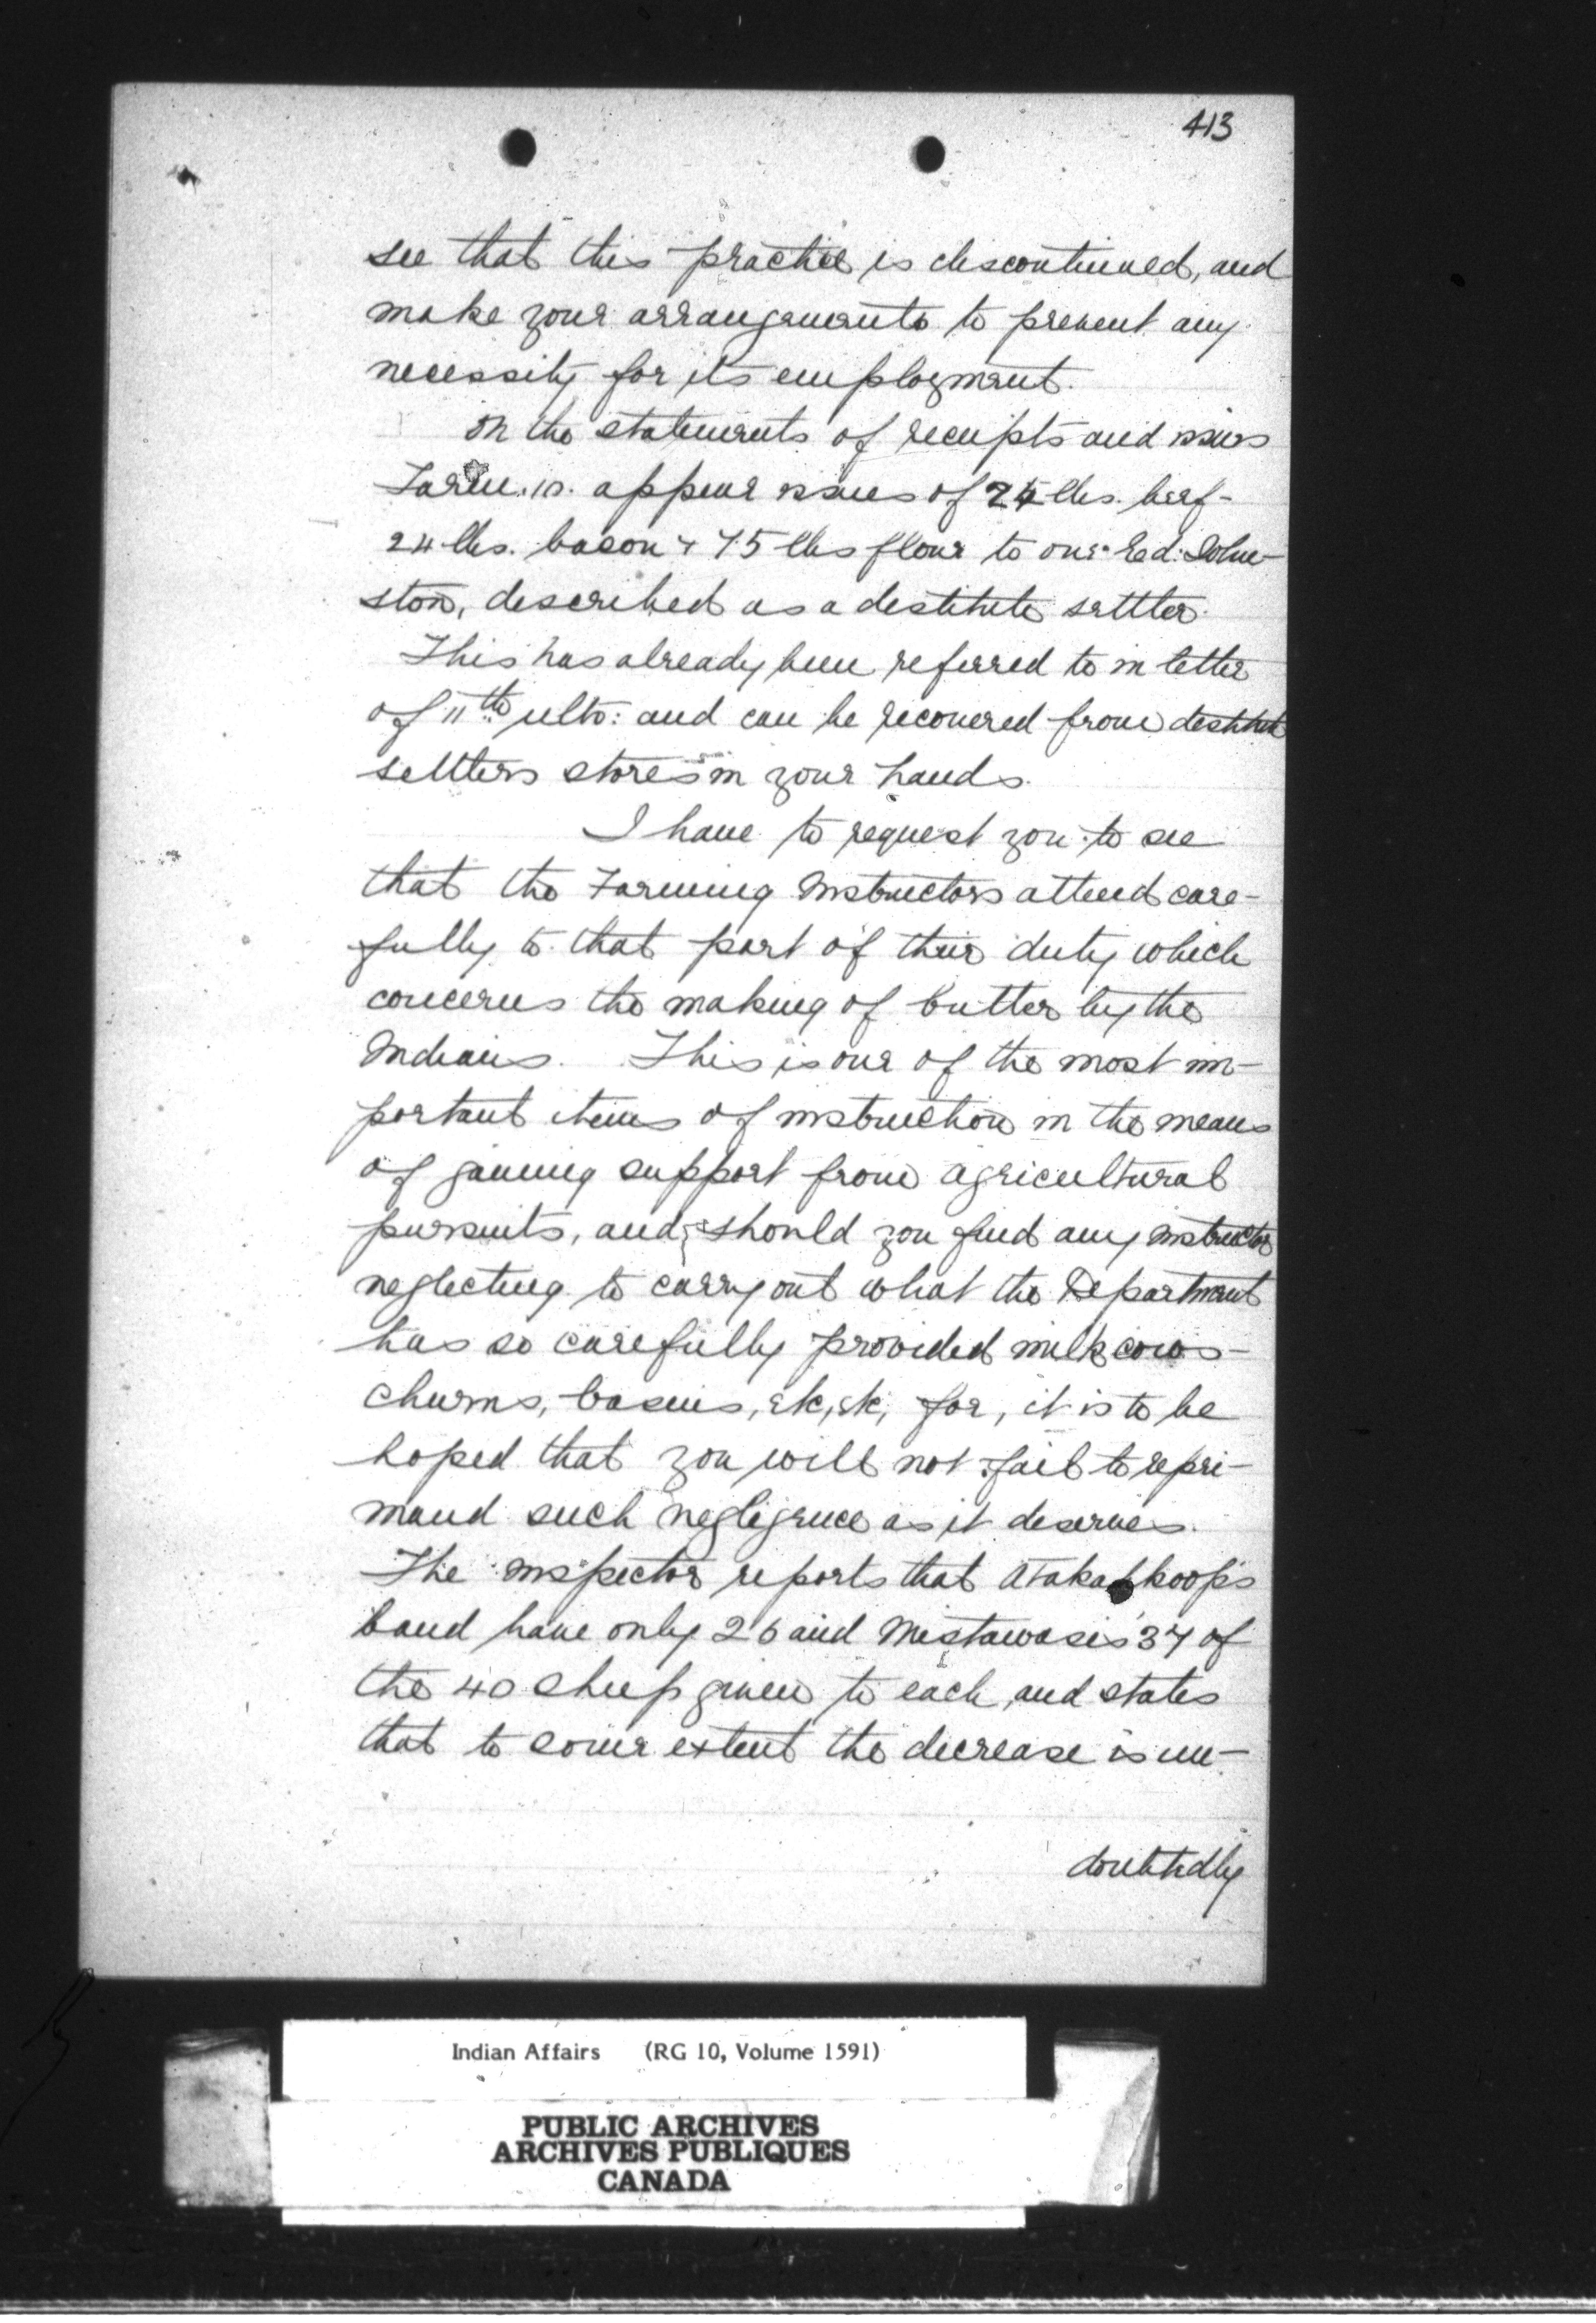 413
see that this practice is discontinued, and
make your arrangements to prevent any
necessity for its employment.
On the statements of receipts and issues
Farm. 10. appear issues of lbs. beef-
24 lbs. bacon & 75 lbs flour to one Ed: John-
ston, described as a destitute settler.
This has already been referred to in letter
of 11th ulto: and can be recovered from destitute
settlers stores in your hands.
I have to request you to see
that the Farming Instructors attend care-
fully to that part of their duty which
concerns the making of butter by the
Indians. This is one of the most im-
portant items of instruction in the means
of gaining support from agricultural
pursuits, and should you find any instructor
neglecting to carry out what the Department
has so carefully provided milk cows-
churns, basins, &c, &c, for, it is to be
hoped that you will not fail to repri-
mand such negligence as it deserves.
The Inspector reports that Atakahkoops
band have only 26 and Mistawasis' 37 of
the 40 sheep given to each, and states
that to some extent the decrease is un-
doubtedly
Indian Affairs (RG 10, Volume 1591)
PUBLIC ARCHIVES
ARCHIVES PUBLIQUES
CANADA